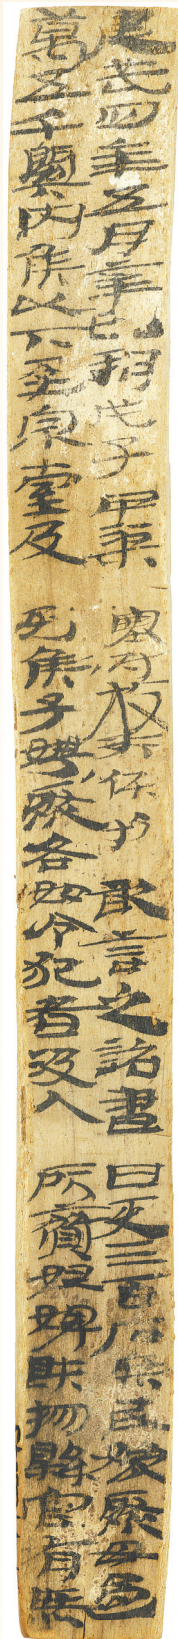 建武四年五月辛巳朔戊子甲渠塞尉放行候事敢言之詔書曰吏三百石庶民嫁娶毋過
萬五千關內侯以下至宗室及列侯子娉娶各如令犯者沒入所齎奴婢財物縣官有無